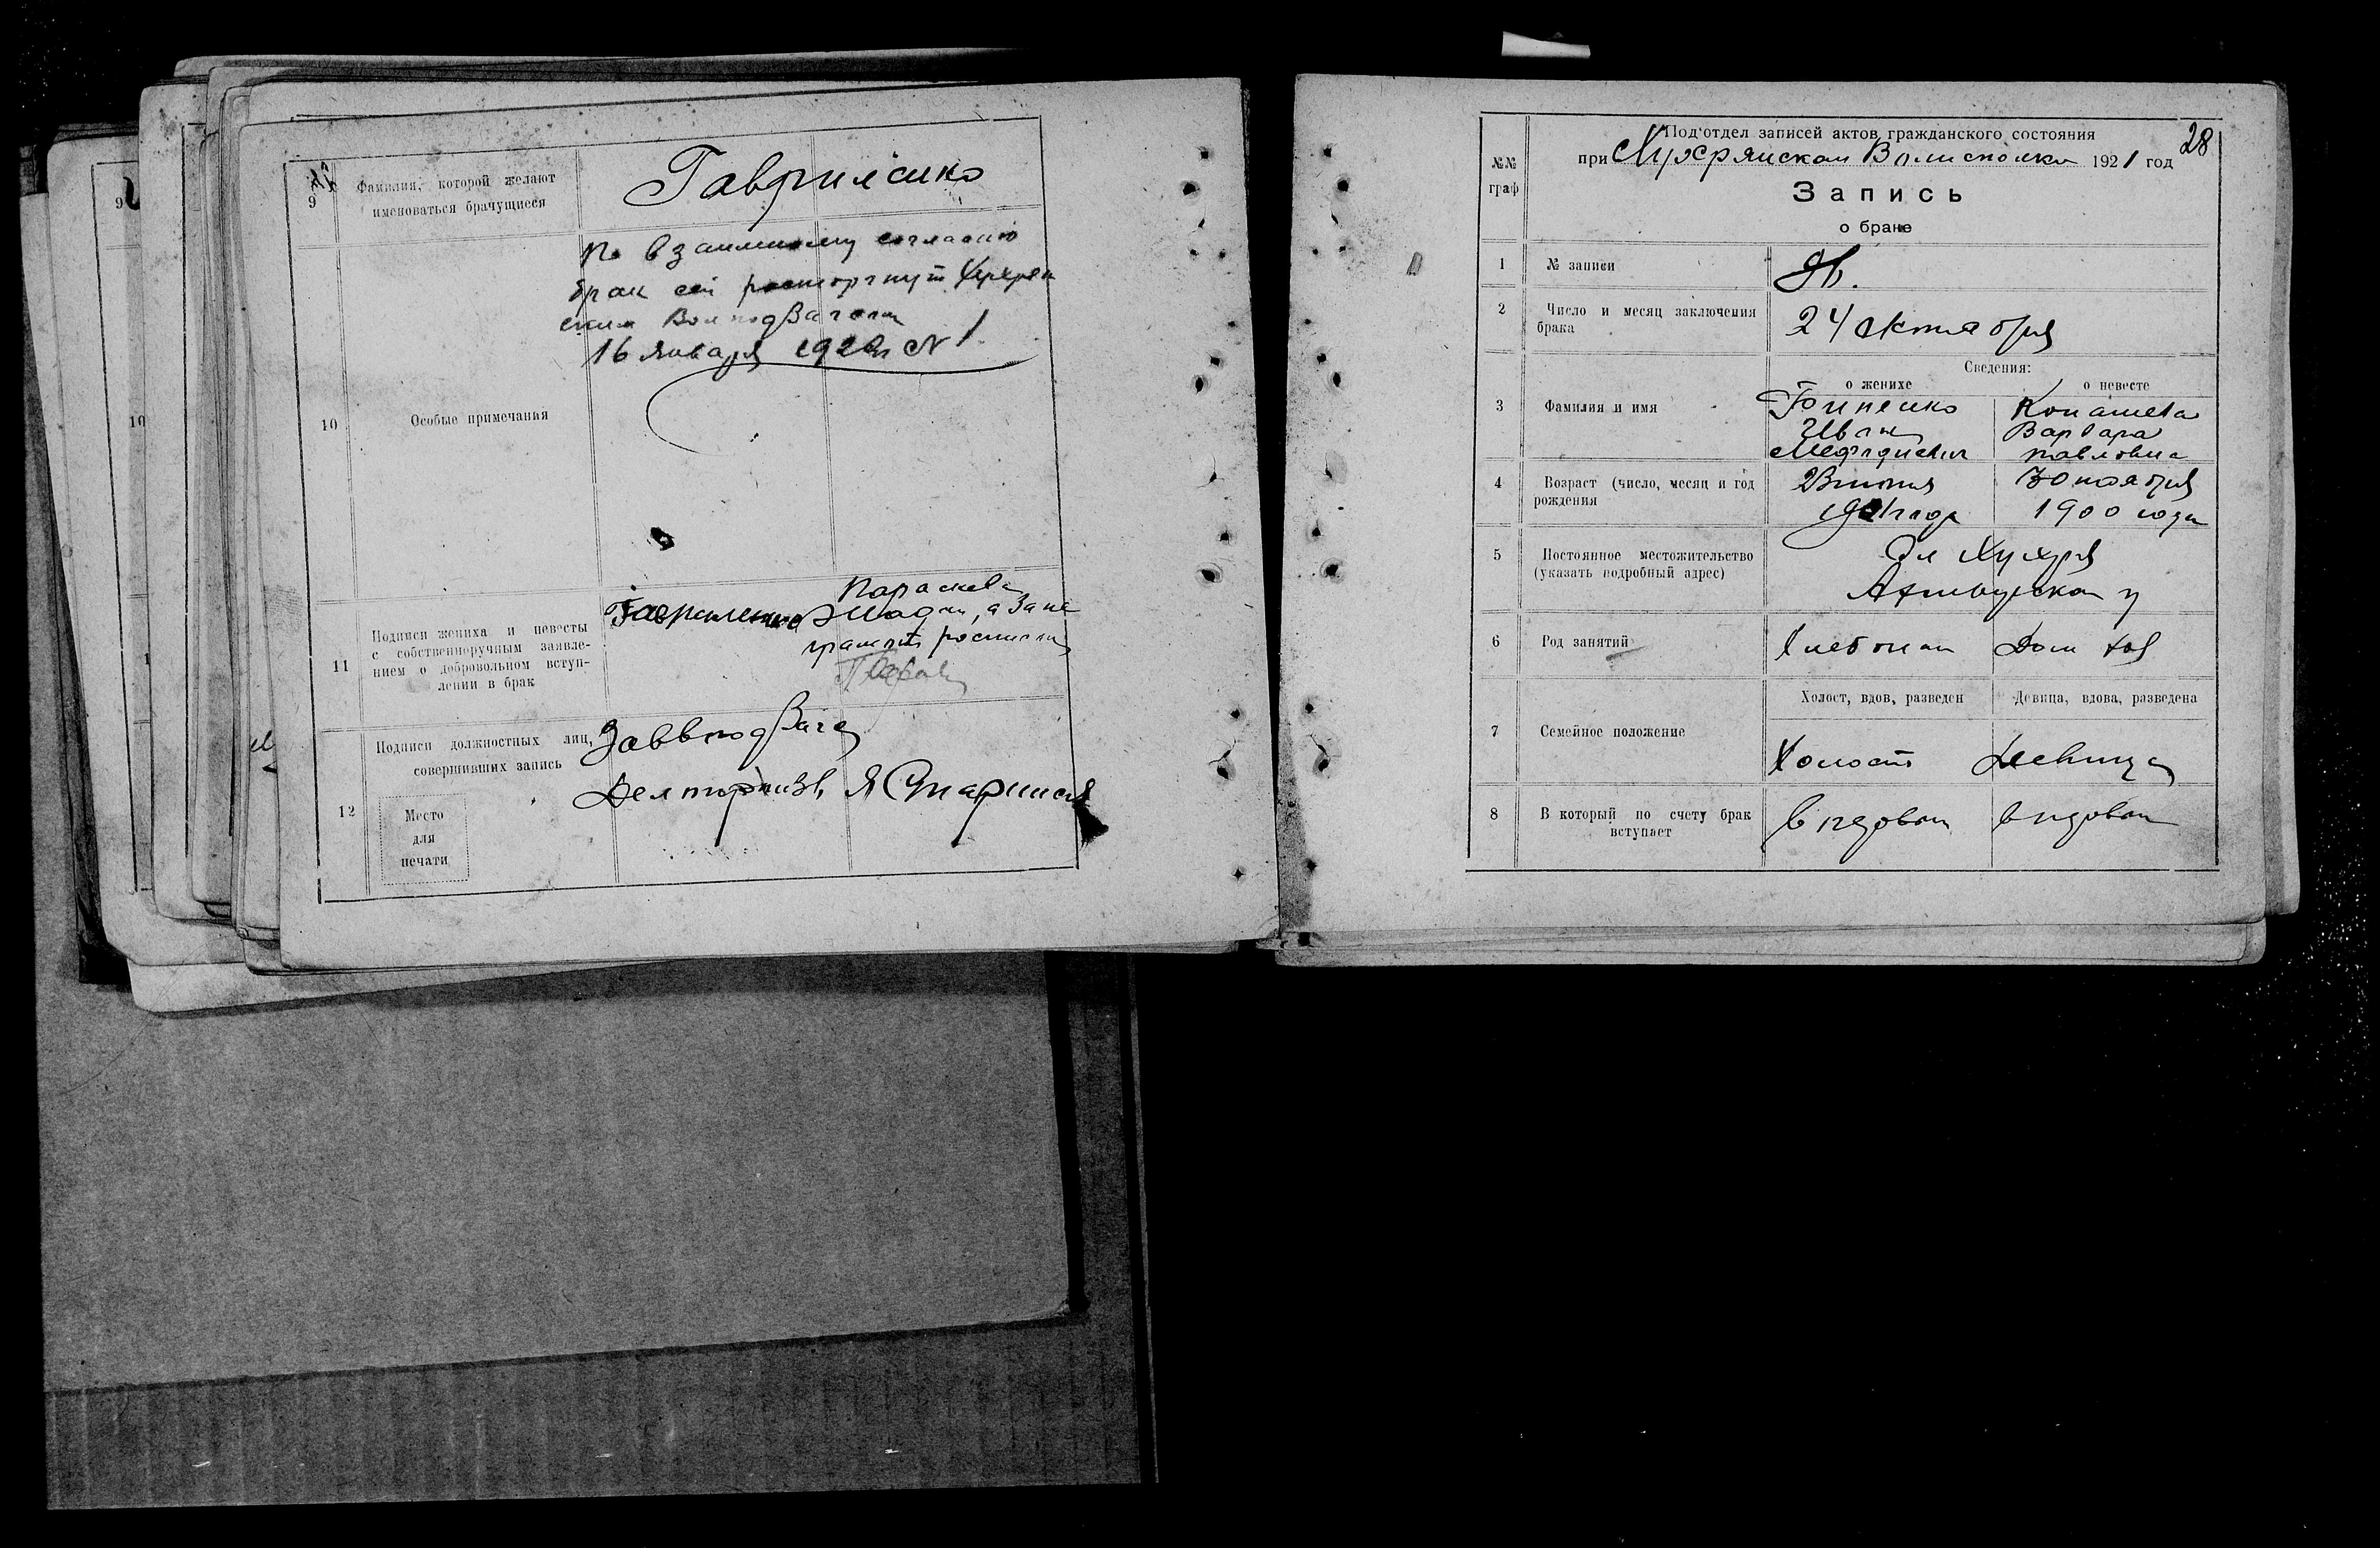 9
Фамилия, которой желают
именоваться брачущиеся
Гавриленко
10
Особые примечания
По взаимному согласию
брак сей расторгнут Хухрян
ским ВолподЗагсом
16 января 1922 г № 1.
11
Подписи жениха и невесты
с собственноручным заявле-
нием о добровольном вступ-
лении в брак
Гавриленко
Параскева
а за не
грамот росписал
12
Подписи должностных лиц,
совершивших запись
Место
для
печати
ЗавВподЗагс
Делопроизв
9
10
28
№№
граф
Под'отдел записей актов гражданского состояния
при Хухрянском Волисполко 1921 год
Запись
о браке
1
№ записи
2
Число и месяц заключения
брака
24 октября
Сведения:
о женихе
о невесте
3
Фамилия и имя
Иван
Мефодиевич
Варвара
Павловна
4
Возраст (число, месяц и год
рождения
1901 года
30 ноября
1900 года
5
Постоянное местожительство
(указать подробный адрес)
Сл Хухря
Ахтырского у
6
Род занятий
Хлебопаш
Дом хоз
7
Семейное положение
Холост, вдов, разведен
Девица, вдова, разведена
Холост
Девица
8
В который по счету брак
вступает
в первый
в первый